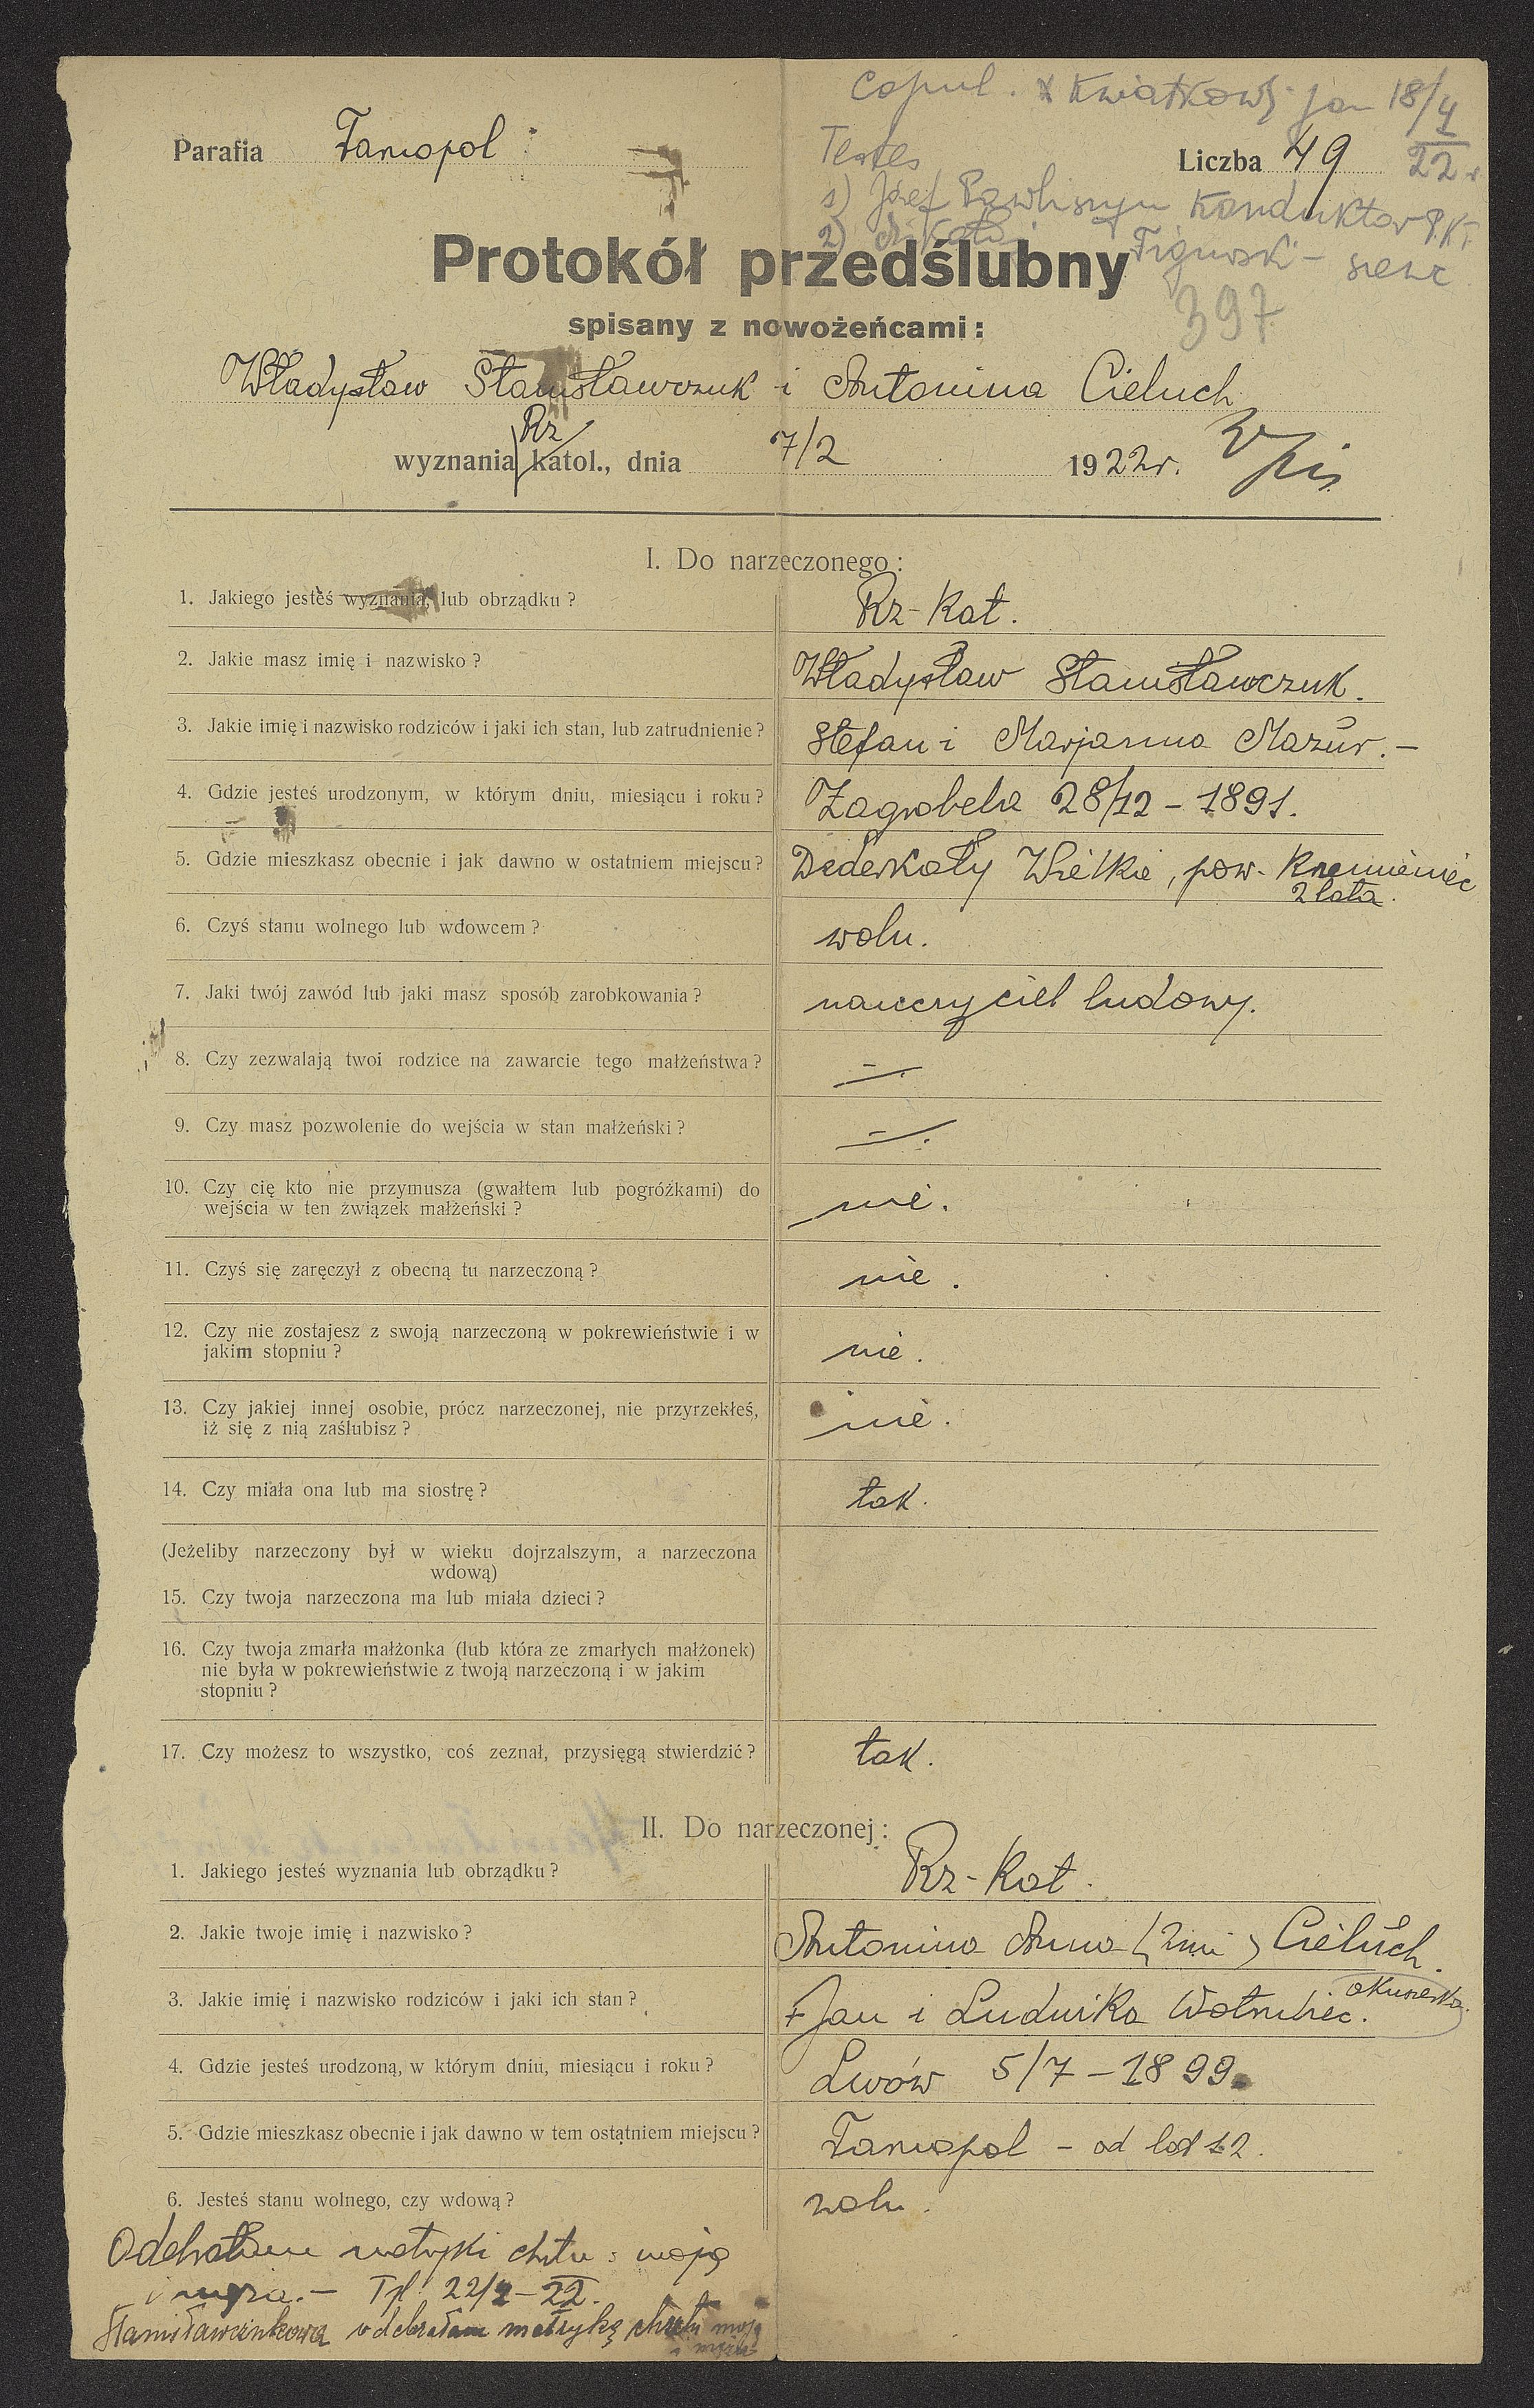 Copul. X Kwiatkowski Jan 18/4
22 r.
Parafia Tarnopol
Testes
Liczba 49
1) Józef Pawliszyn Konduktor P.K.
2) Mikołaj Figurski –
397
Protokół przedślubny
spisany z nowożeńcami:
Władysław Stanisławczuk i Antonina Cieluch
Rz
wyznania katol., dnia 7/2 1922r.
I. Do narzeczonego:
1. Jakiego jesteś wyznania, lub obrządku? Rz-Kat.
2. Jakie masz imię i nazwisko? Władysław Stanisławczuk.
3. Jakie imię i nazwisko rodziców i jaki ich stan, lub zatrudnienie? Stefan i Marjanna Mazur. –
4. Gdzie jesteś urodzonym, w którym dniu, miesiącu i roku? Zagrobela 28/12 – 1891.
5. Gdzie mieszkasz obecnie i jak dawno w ostatniem miejscu? Dederkały Wielkie, pow. Krzemieniec
2 lata.
6. Czyś stanu wolnego lub wdowcem? woln.
7. Jaki twój zawód lub jaki masz sposób zarobkowania? nauczyciel ludowy.
8. Czy zezwalają twoi rodzice na zawarcie tego małżeństwa? —.
9. Czy masz pozwolenie do wejścia w stan małżeński? —.
10. Czy cię kto nie przymusza (gwałtem lub pogróżkami) do
wejścia w ten związek małżeński? nie.
11. Czyś się zaręczył z obecną tu narzeczoną? nie.
12. Czy nie zostajesz z swoją narzeczoną w pokrewieństwie i w
jakim stopniu? nie.
13. Czy jakiej innej osobie, prócz narzeczonej, nie przyrzekłeś,
iż się z nią zaślubisz? nie.
14. Czy miała ona lub ma siostrę? tak.
(Jeżeliby narzeczony był w wieku dojrzalszym, a narzeczona
wdową)
15. Czy twoja narzeczona ma lub miała dzieci?
16. Czy twoja zmarła małżonka (lub która ze zmarłych małżonek)
nie była w pokrewieństwie z twoją narzeczoną i w jakim
stopniu?
17. Czy możesz to wszystko, coś zeznał, przysięgą stwierdzić? tak.
II. Do narzeczonej:
1. Jakiego jesteś wyznania lub obrządku? Rz-Kat.
2. Jakie twoje imię i nazwisko? Antonina Anna (2im) Cieluch.
3. Jakie imię i nazwisko rodziców i jaki ich stan? +Jan i Ludwika Wotrubiec. akuszerka.
4. Gdzie jesteś urodzoną, w którym dniu, miesiącu i roku? Lwów 5/7 – 1899.
5. Gdzie mieszkasz obecnie i jak dawno w tem ostatniem miejscu? Tarnopol – od lat 12.
6. Jesteś stanu wolnego, czy wdową? woln.
Odebrałam metryki chrztu: moją
i męża. – Tpl. 22/4 – 22.
Stanisławczukowa odebrałam metrykę chrztu moją
i męża